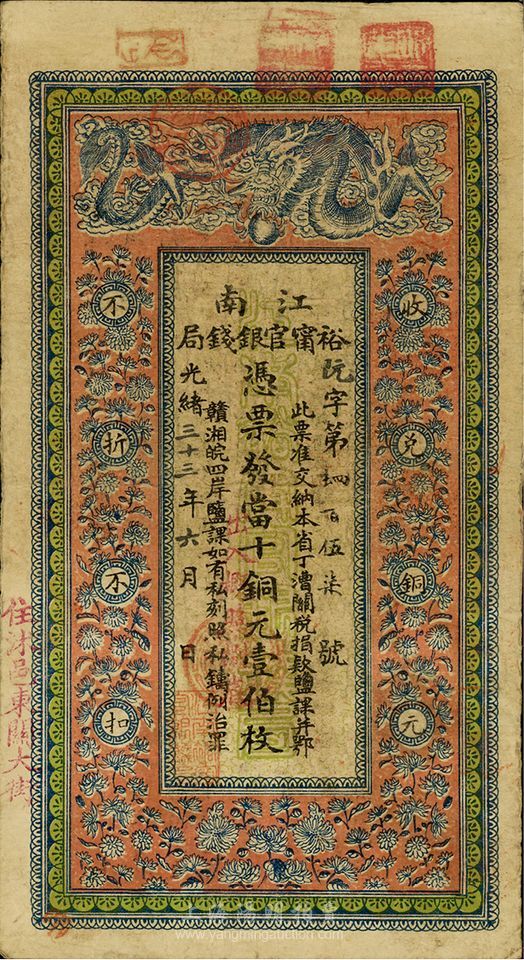 江南
裕甯官銀錢局
阮字第肆百伍柒號
此票准交納本省丁漕關稅捐款鹽課并鄂
憑票發當十銅元壹伯枚
贛湘皖四岸鹽課如有私刻照私鑄例治罪
光緒三十三年六月 日
收兌銅元
不折不扣
住沭邑東關大街
www.yangmingauction.com